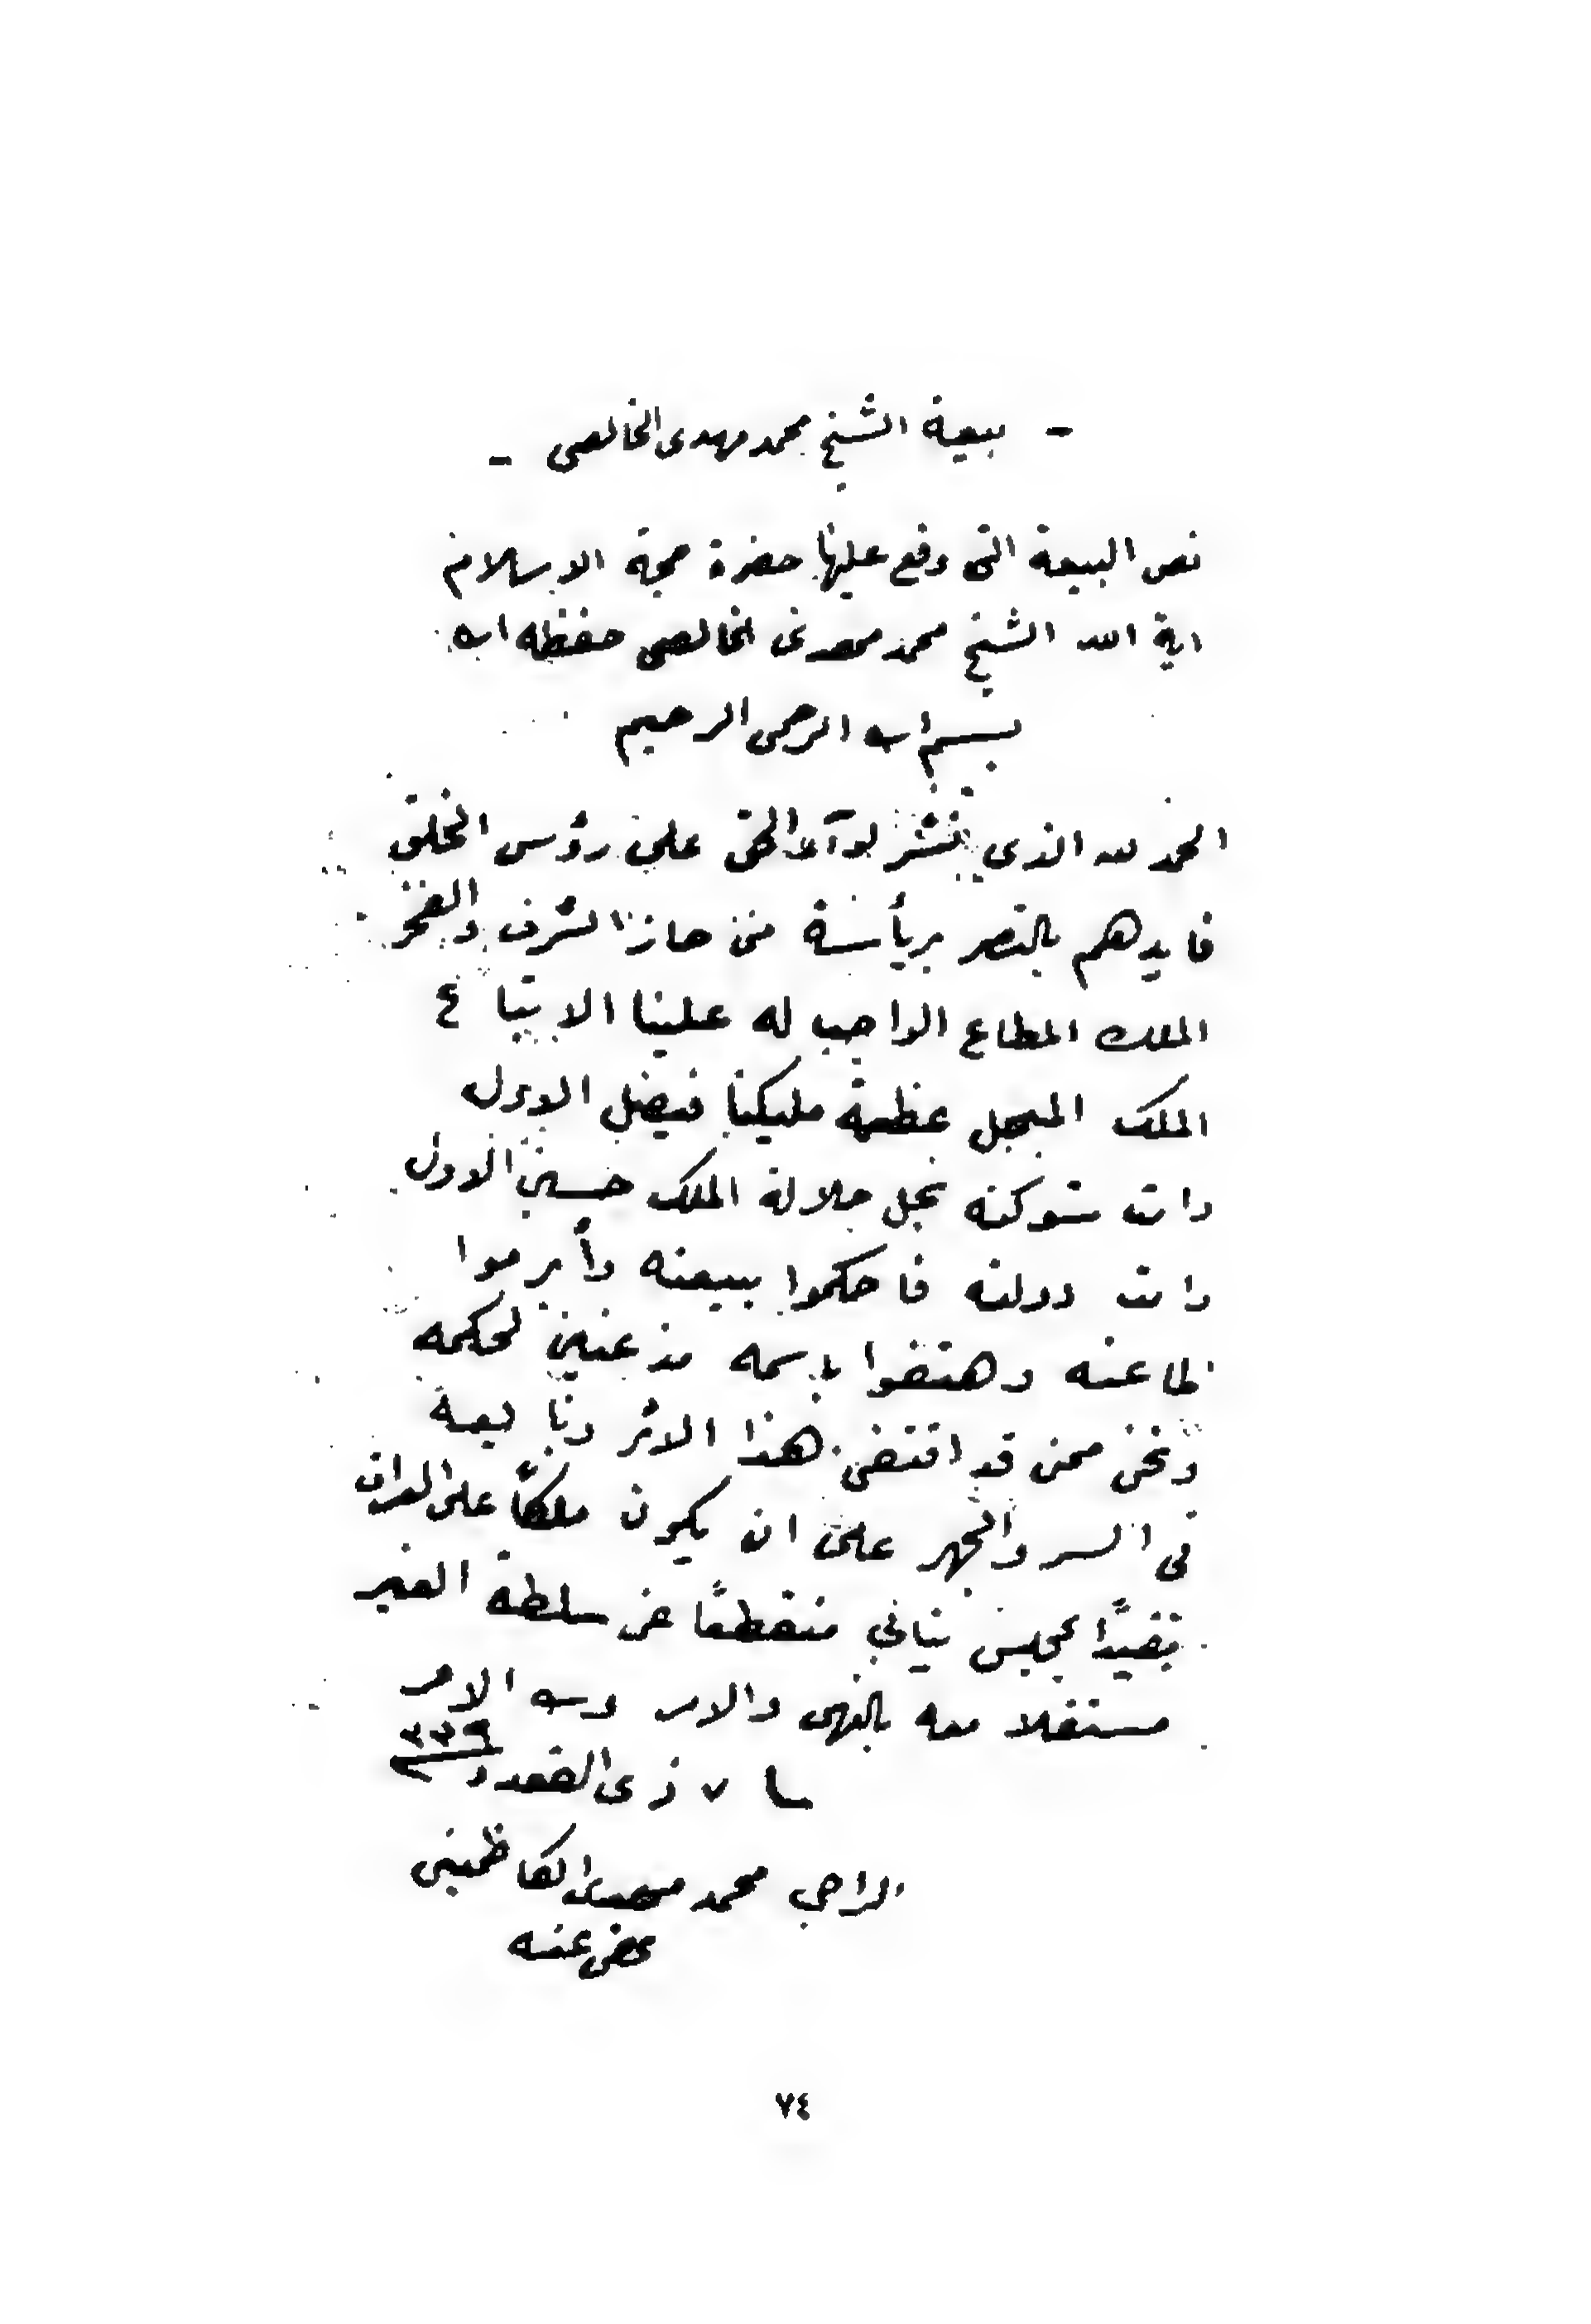 - بيعة الشيخ محمد مهدى الخالصى -
نص البيعة التى وقع عليها حضرة حجة الاسلام
اية الله الشيخ محمد مهدى الخالصى حفظه الله
بسم الله الرحمن الرحيم
الحمد لله الذى نشر لوآء الحق على رؤس الخلق
فايدهم بالنصر برأسة من حاز الشرف والفخر
الملك المطاع الواجب له علينا الاتباع
الملك المبجل عظمة مليكنا فيصل الاول
دامت شوكته نجل جلالة الملك حسين الاول
دامت دولته فاحكموا ببيعته وأبرموا
طاعته وهتفوا باسمه مذعنين لحكمه
ونحن ممن قد اقتفى هذا الاثر وبايعه
فى السر والجهر على ان يكون ملكاً على العراق
مقيداً بمجلس نيابي منقطعاً عن سلطة الغير
مستقلا معه بالنهى والامر ولله الامر
٧ ذى القعدة ٣٣٩
الراجى محمد مهدى الكاظمينى
عفى عنه
٧٤